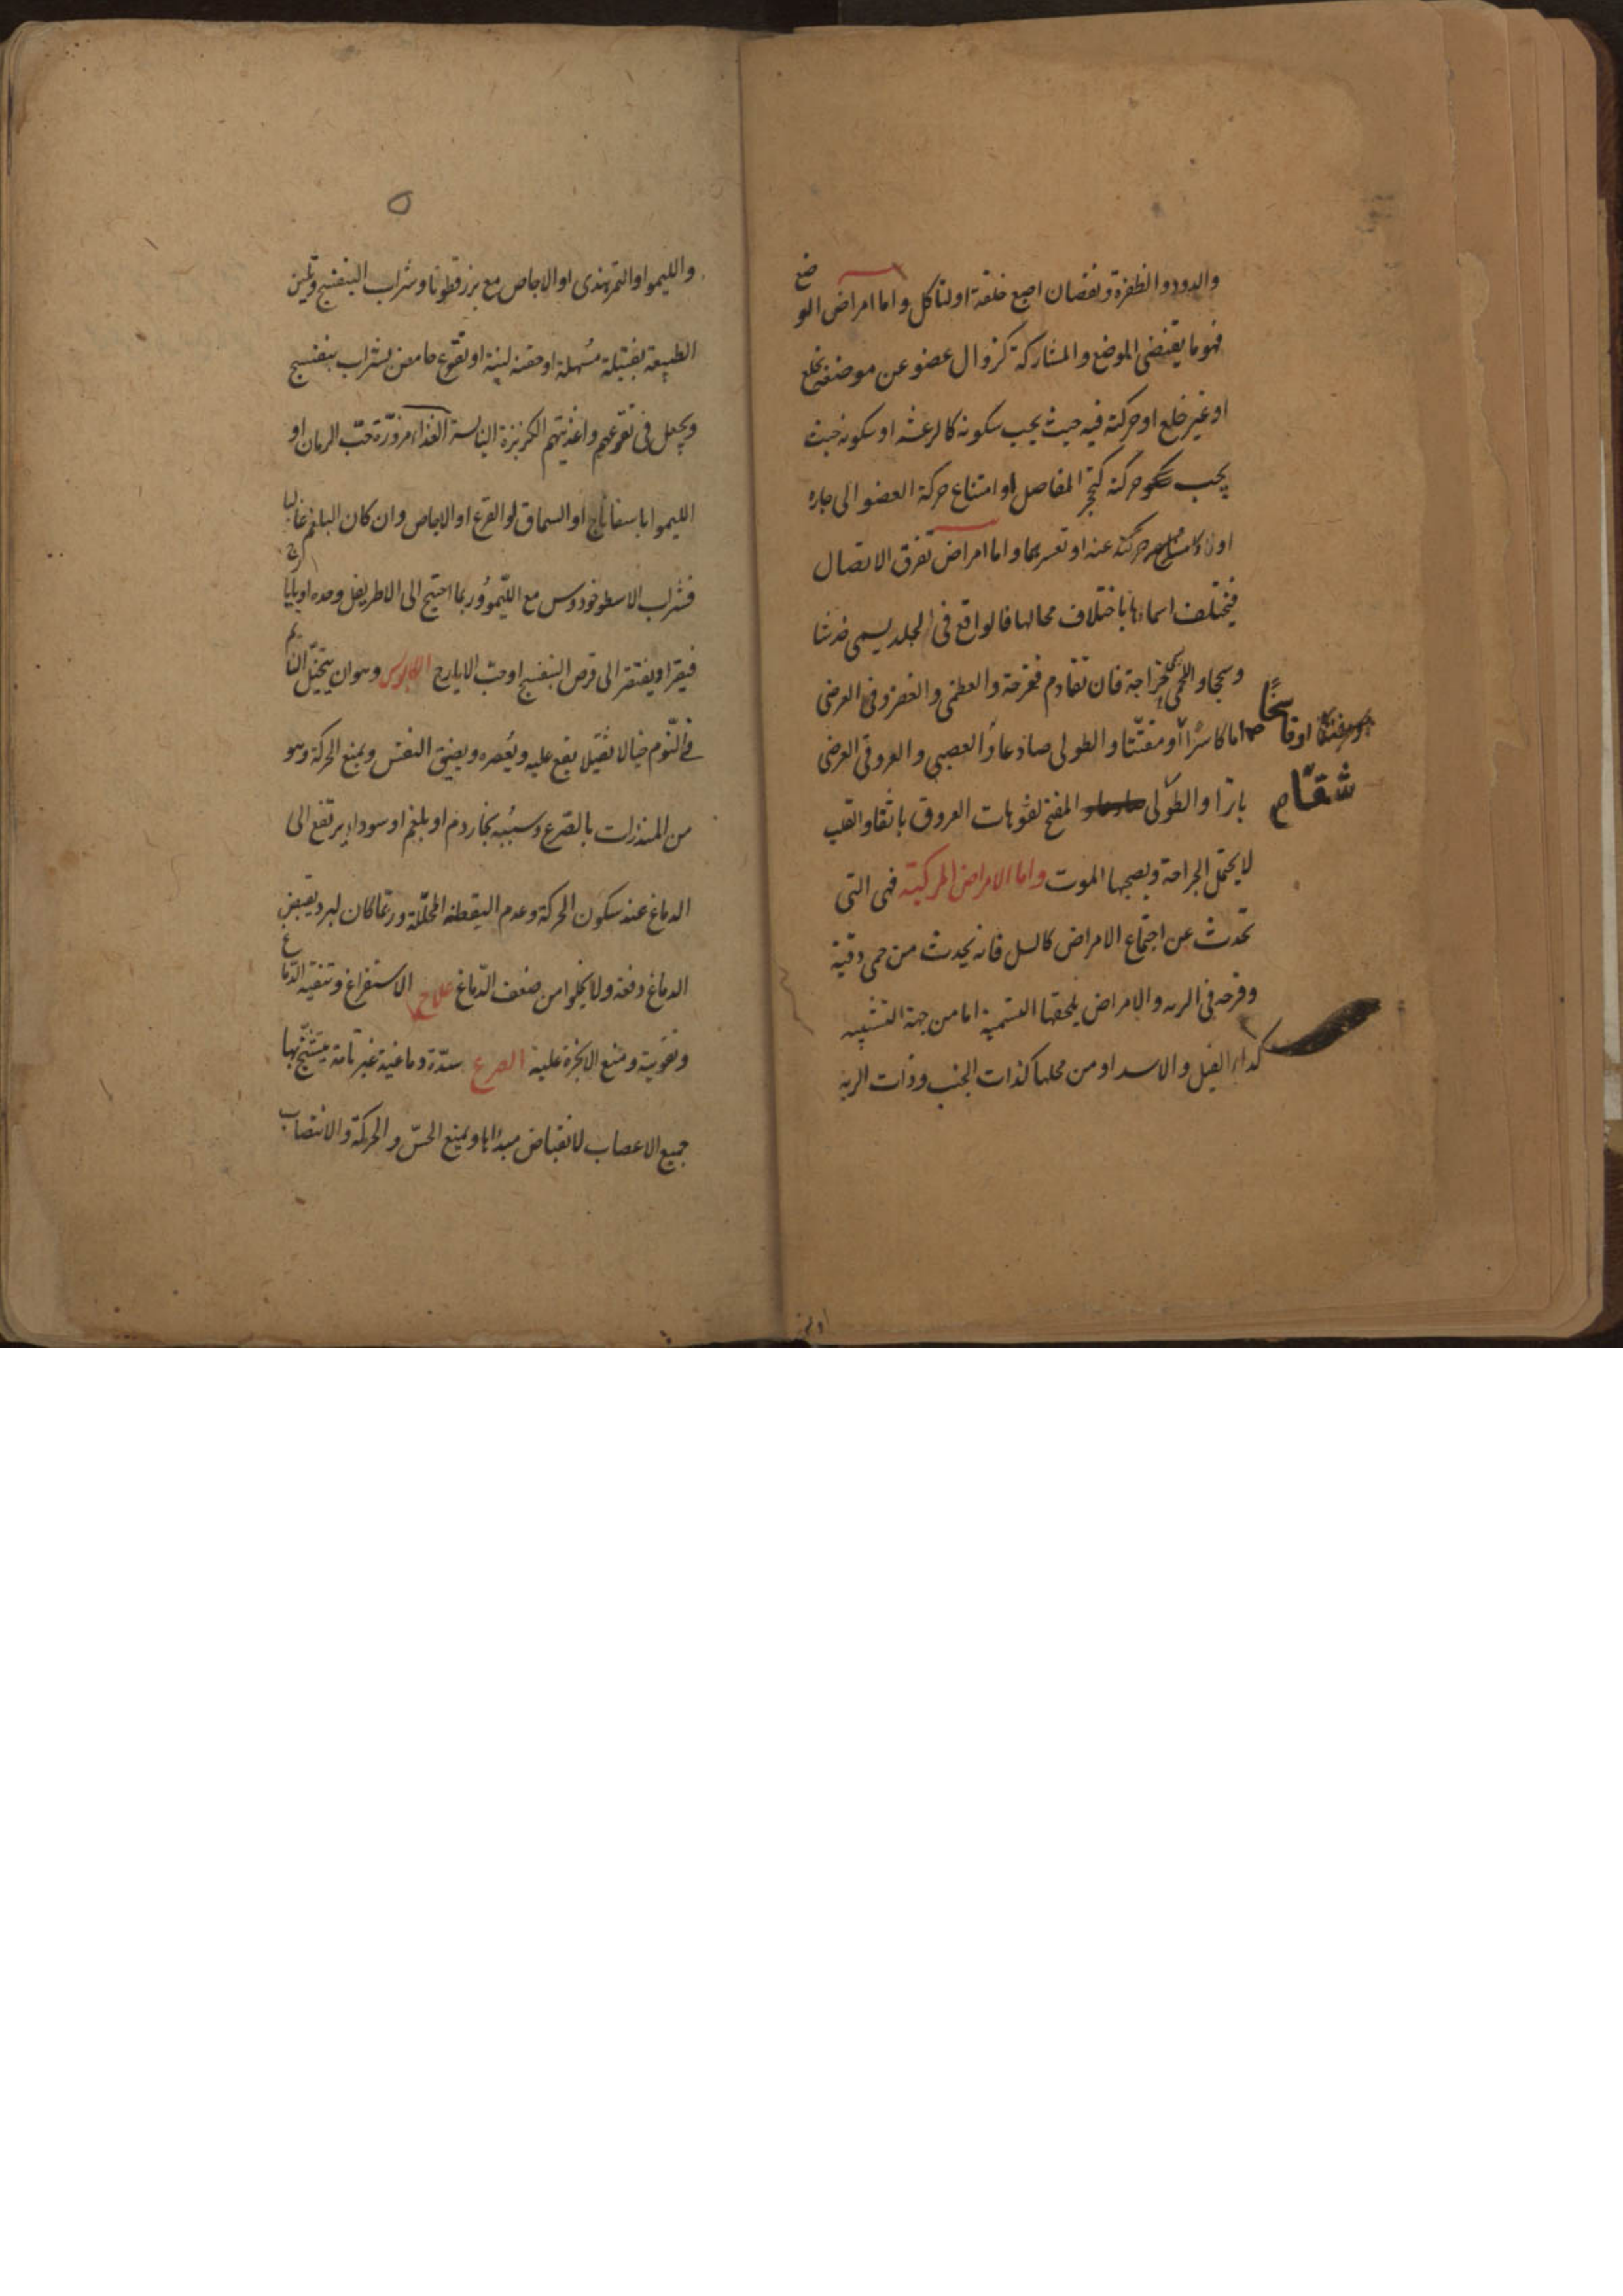 والدود والظفرة ونقصان اصبع خلقة او لتاكل واما امراض الوضع
فهو ما يقتضى الموضع والمشاركة كزوال عضو عن موضعه بخلع
او غير خلع او حركته فيه حيث يجب سكونه كالرعشه او سكونه حيث
يجب حركته كتحجر المفاصل او امتناع حركة العضو الى جاره
او حركته عنه او تعسرهما واما امراض تفرق الاتصال
فيختلف اسماءها باختلاف محالها فالواقع فى الجلد يسمى خدشا
وسحجا واللحمى جراحة فان تقادم فقرحة والعظمى والغضروفى العرضى
اما كاسرا او مفتتا والطولى صادعا والعصبى والعروقى العرضى
شقا
بازا والطولى المفتح لفوهات العروق باثقا والقلب
لا يحتمل الجراحة ويصحبها الموت واما الامراض المركبة فهى التى
تحدث عن اجتماع الامراض كالسل فانه يحدث من حمى دقية
وقرحه فى الريه والامراض يلحقها التسمية اما من جهة التشبيه
كداء الفيل والاسد او من محلها كذات الجنب وذات الريه
٥
والليمو او التمرهندى او الاجاص مع بزرقطونا وشراب البنفسج وتليين
الطبيعة بفتيلة مسهلة او حقنة لينة او نقوع حامض بشراب بنفسج
ويجعل فى نقوعهم واغذيتهم الكزبزة اليابسة الغذاء مزوّرة حبّ الرمان او
الليمو اباسفاناج او السماق او القرع او الاجاص وان كان البلغم غالبا
فشراب الاسطوخودوس مع الليمو وربما احتيج الى الاطريفل وحده او بايارج
فيقرا ويفتقر الى قرص البنفسج او حبّ الايارج الكابوس وهو ان يتخيّل النائم
فى النّوم خيالا ثقيلا يقع عليه ويعصره ويضيق النفس ويمنع الحركة وهو
من المنذرات بالصرع وسببه بخار دم او بلغم او سوداء يرتفع الى
الدماغ عند سكون الحركة وعدم اليقظة المحللّة وربّما كان لبرد يقبض
الدماغ دفعة ولا يخلوا من ضعف الدّماغ علاج الاستفراغ وتنقية الدّماغ
وتقوية ومنع الابخرة عليه الصرع سدّة دماغية غير تامة يتشنّج بها
جميع الاعصاب لانقباض مبدأها ويمنع الحسّ والحركة والانتصاب